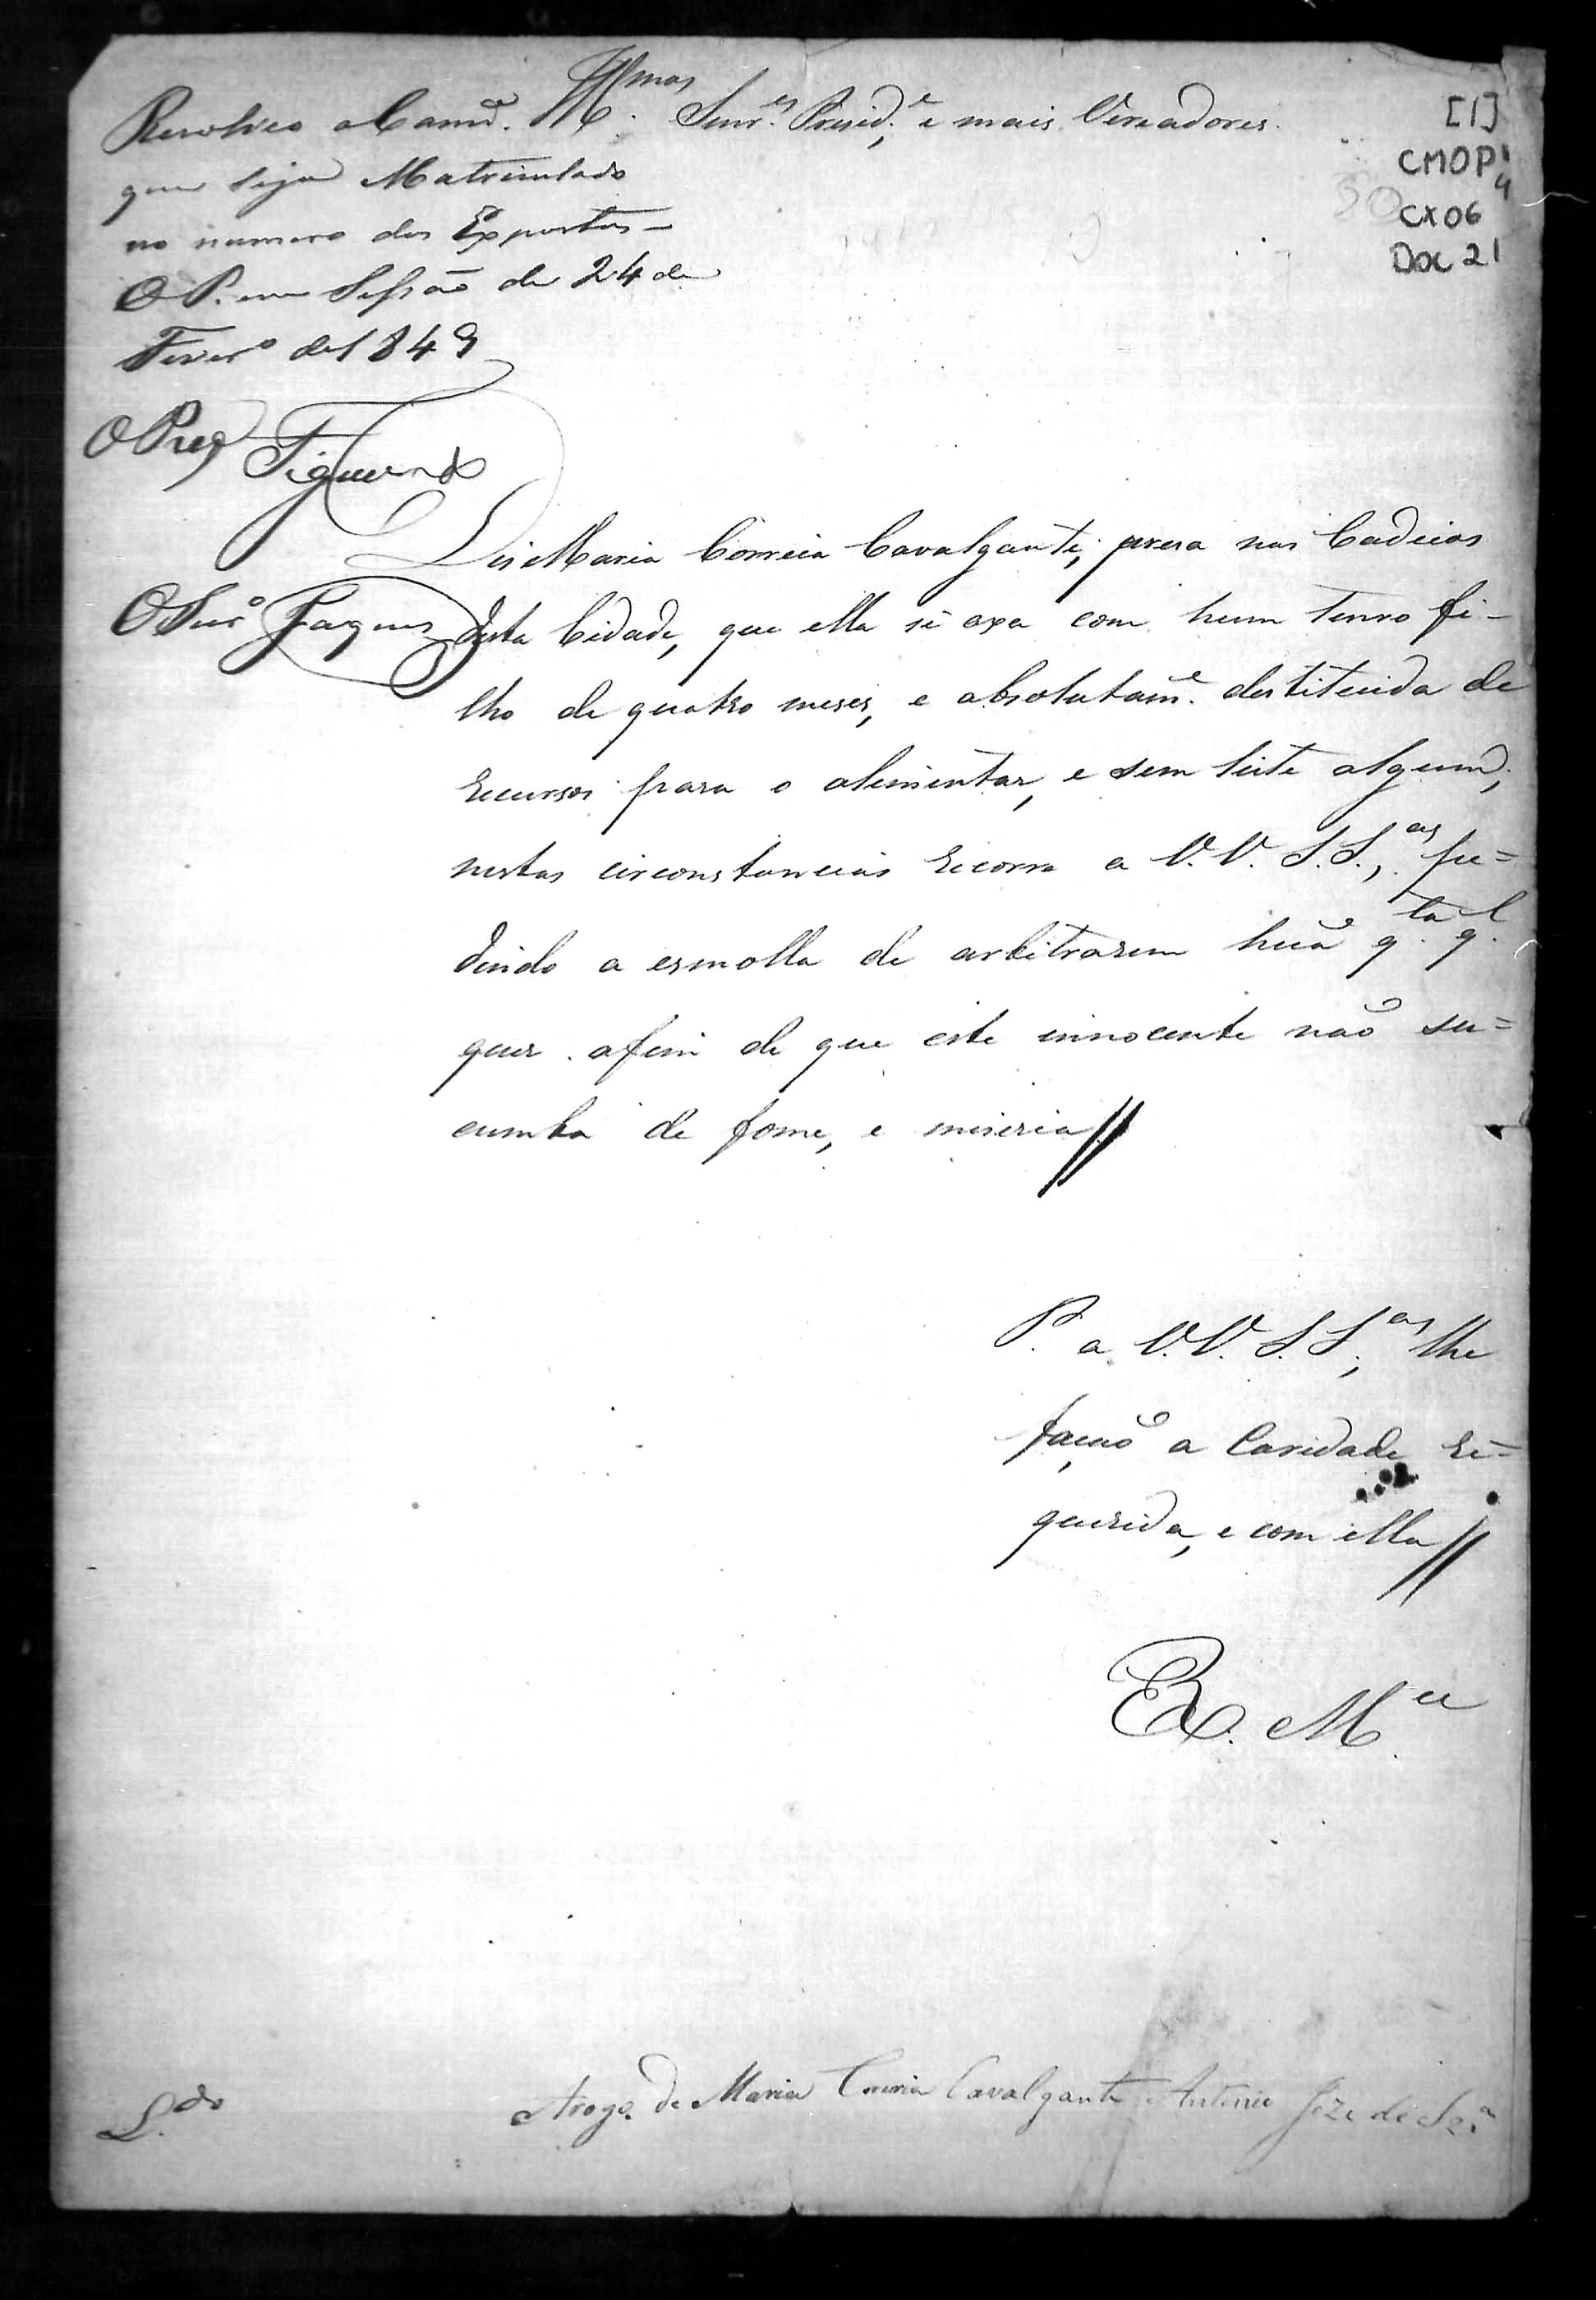 Illmos Senr.es Presid.e, e mais Vereadores.
[1]
CMOP
CX06
Doc 21
Resolveo a Camr.ª
que seja Matriculado
no numero dos Expostos –
O P. em Sessão de 24 de
Fever.o de 1849
O Prez Figueiredo
Diz Maria Correia Cavalgante, preza nas Cadeias
desta Cidade, que ella se axa com hum tenro fi-
lho de quatro meses, e absolutam.e destituida de
recursos para o alimentar, e sem leite algum,
nestas circonstancias recorre a V.V. S.S.as, pe=
dindo a esmolla de arbitrarem huã q.ta q.l
quer afim de que este innocente não su=
cumba de fome, e miseria//
P. a V.V. S.S.as, lhe
fação a Caridade re=
querida, e com ella//
E R. M.ce
L.do
Arogo de Maria Correia Cavalgante Antonio Joze de